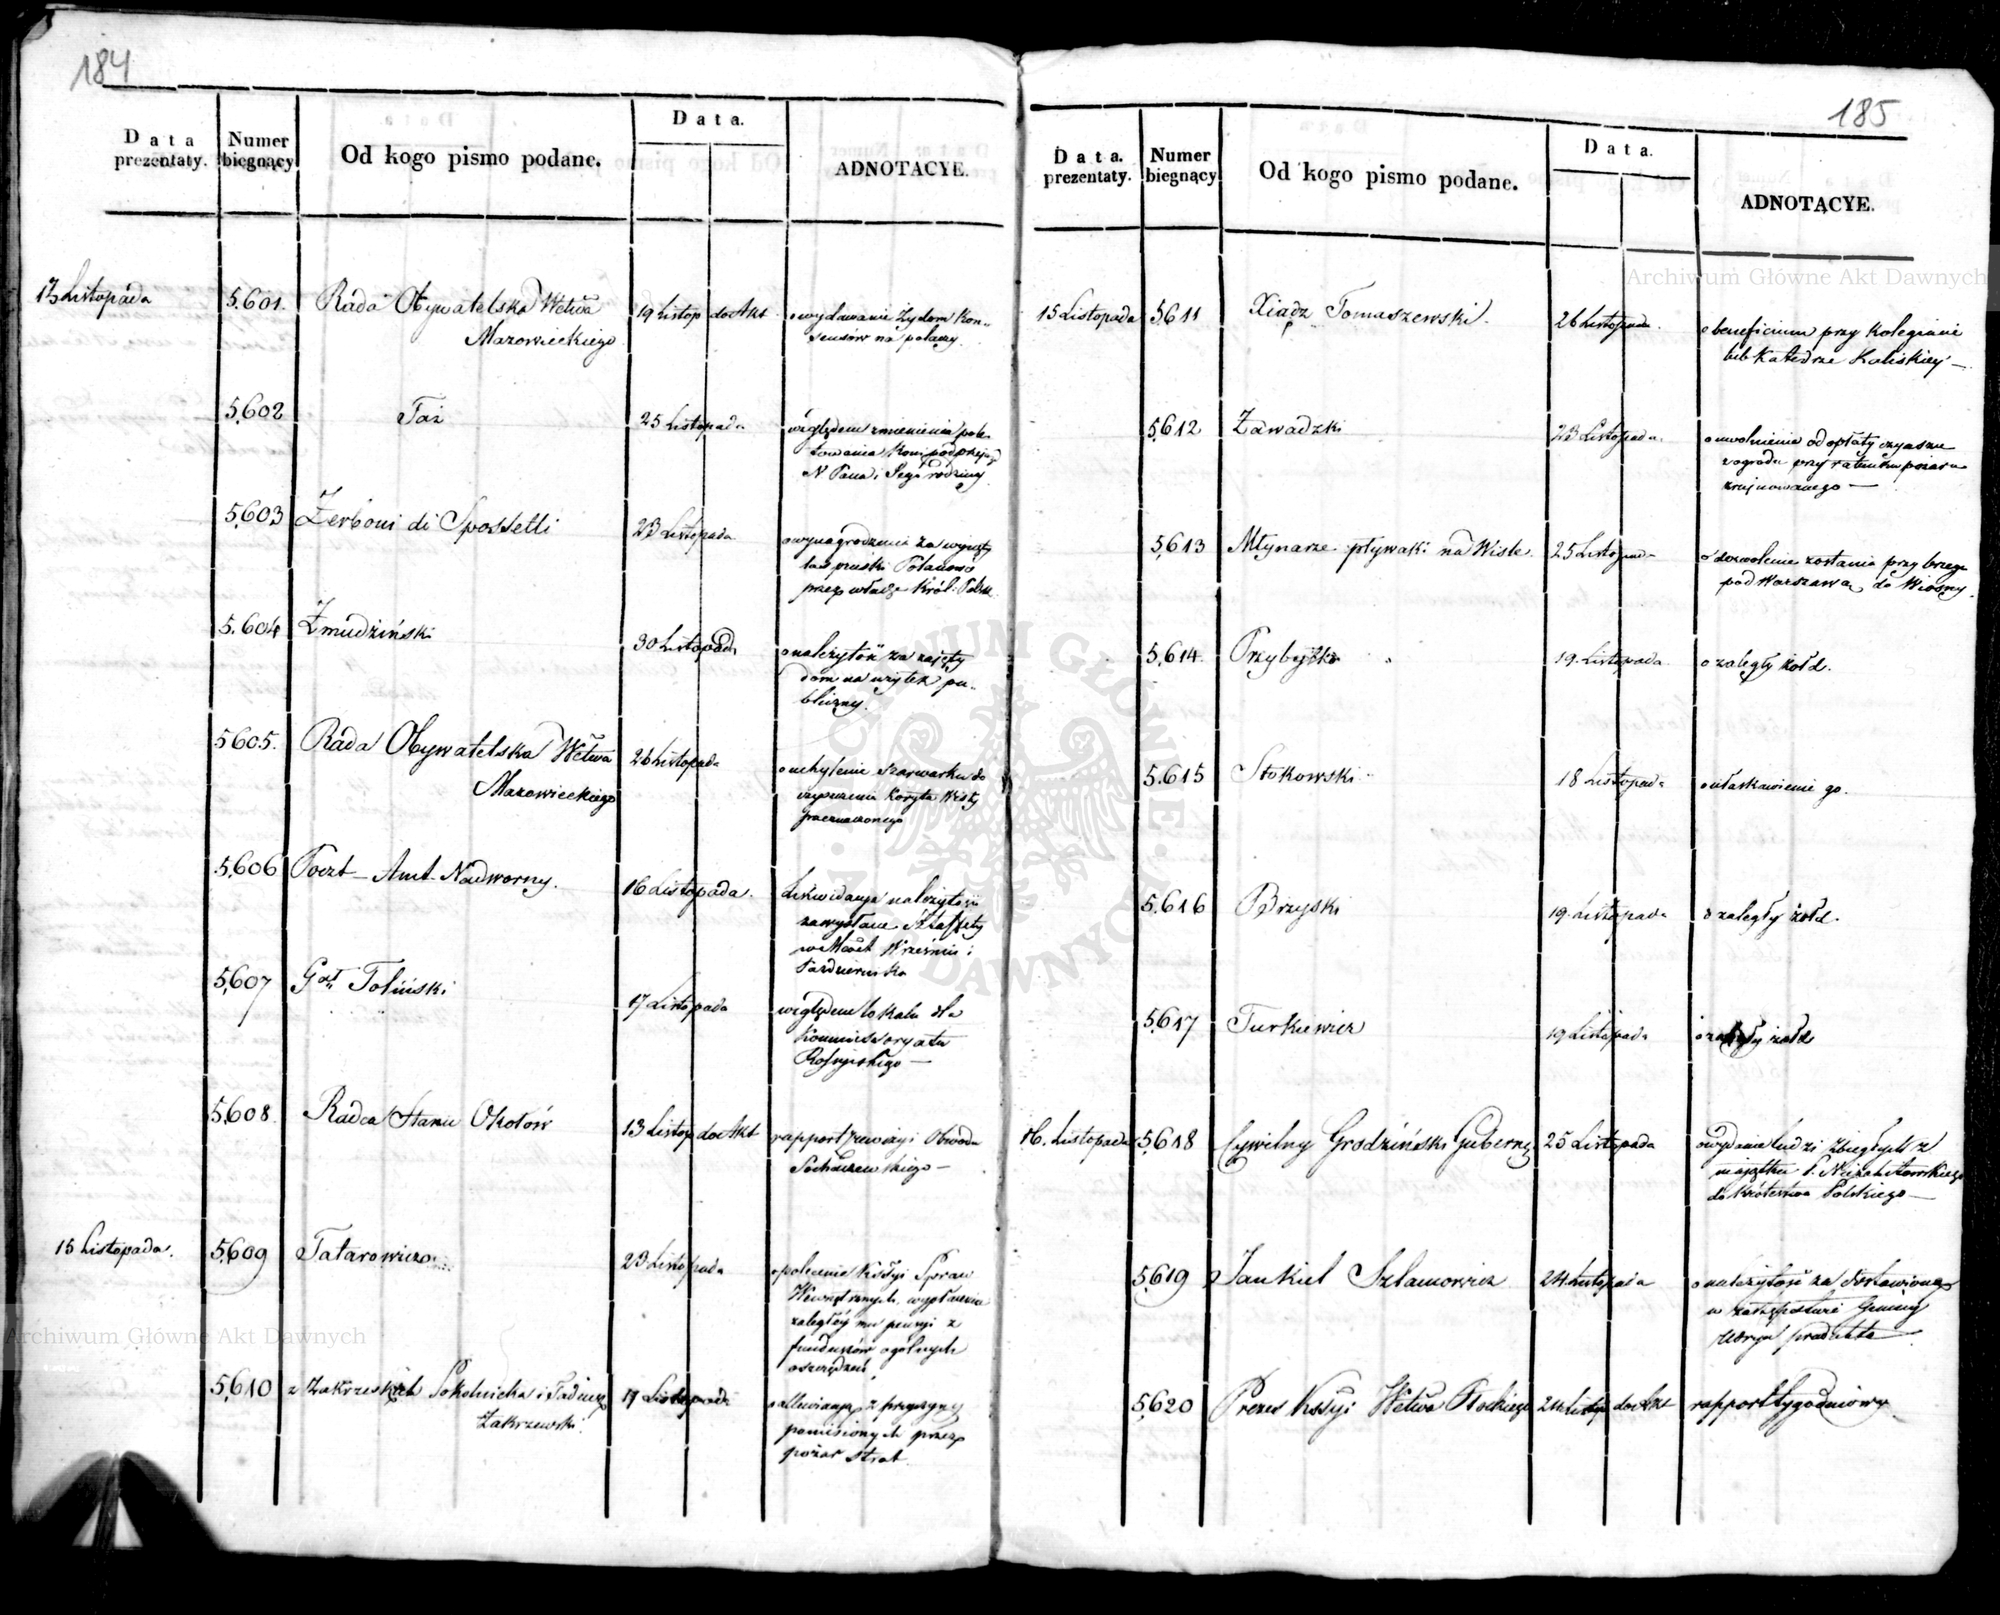 184
Data prezentaty.
Numer biegnący
Od kogo pismo podane.
Data.
ADNOTACYE.
13 Listopada 5,601. Rada Obywatelska Wctwa 19 Listop do Akt o wydawanie Żydom kon-
Mazowieckiego sensów na
5,602 Taż 25 Listopada względem zmienienia
N Pana i Jego rodziny
5,603 Zerboni di Sposetti 23 Listopada o wynagrodzenie za wzięty
las pruski
przez władze Król: Polskie
5.604 Żmudziński 30 Listopada o należytość za zajęty
dom na użytek pu-
bliczny.
5605. Rada Obywatelska Wctwa 26 Listopada o uchylenie szarwarku do
Mazowieckiego czyszczenia koryta Wisły
przeznaczonego
5,606 Poczt-Amt Nadworny. 16 Listopada. Likwidacya należytości
za wysłane Sztafety
w Wrześniu i
Październiku
5,607 Toliński 17 Listopada względem lokalu dla
Kommissoryatu
Rossyiskiego —
5,608 Radca Stanu Okołow 13 Listop do Akt rapport z rewizyi Obwodu
Sochaczewskiego —
15 Listopada. 5,609 Tatarowicz 23 Listopada o polecenie Kssyi Spraw
Wewnętrznych, wypłacenia
zaległéy mu pensyi z
funduszów ogólnych
oszczędzeń.
5,610 z Zakrzeskich Sokolnicka i Tadeusz 17 Listopada o allewiacyą z przyczyny
Zakrzewski. poniesionych przez
pożar strat
185
Data. prezentaty.
Numer biegnący
Od kogo pismo podane.
Data.
ADNOTACYE.
15 Listopada 5,611 Xiądz Tomaszewski. 26 Listopada. o beneficium przy kolegiacie
lub Katedrze Kaliskiey —
5,612 Zawadzki 23 Listopada. o uwolnienie od opłaty czynszu
z ogrodu przy ratunku pożaru
zrujnowanego —
5,613 Młynarze pływaki na Wisle. 25 Listopada o dozwolenie zostania przy brzegu
pod Warszawą do Wiosny.
5,614 Przybyłko 19. Listopada o zaległy żołd.
5.615 Stokowski 18 Listopada o ułaskawienie go.
5,616 Brzyski 19. Listopada o zaległy żołd.
5,617 Turkiewicz 19 Listopada o zaległy żołd
16. Listopada 5,618 Cywilny Grodziński Guberny 25 Listopada o wydanie ludzi zbiegłych z
majątku
do Królestwa Polskiego —
5,619 Jankiel Szlamowicz 24 Listopada o należytość za dostawione
w zastępstwie Gminy
produkta
5,620 Prezes Kssyi Wctwa Płockiego 24 Listop do Akt rapport tygodniowy
Archiwum Główne Akt Dawnych
Archiwum Główne Akt Dawnych
ARCHIWUM GŁÓWNE AKT DAWNYCH